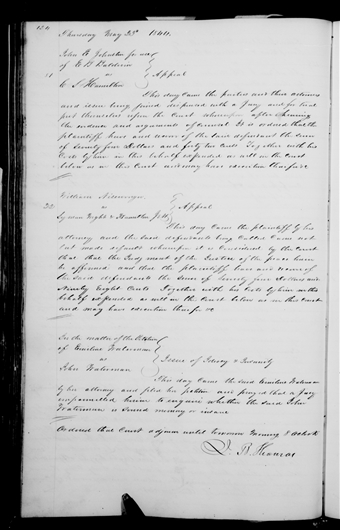 Thursday May 23d 1844.
John E Johnston for use
of E B Baldwin
vs Appeal
C. S. Hamilton
This day Came the parties and their attorneys
and issue being joined dispensed with a Jury and for trial
put themselves upon the Court whereupon after hearing
the evidence and arguments of Counsel It is ordered that the
plaintiff have and recover of the said defendant the sum
of Seventy four Dollars and forty two Cents Together with his
Costs by him in this behalf expended as well in the Court
below as in this Court and may have execution therefor &c
William
vs Appeal
This day Came the plaintiff by his
attorney and the said defendants being Called Came not
but made default whereupon it is Considered by the Court
that the Judgment of the Justice of the peace
be affirmed and that the plaintiff have and recover of
the said defendants the Sum of Dollars and
Ninety Eight Cents Together with his Costs by him in this
behalf expended as well in the Court below as in this Court
and may have execution therefor &c
In the matter of the Petition
of Emilius Waterman
vs Issue of Idiocy & Insanity
John Waterman
This day Came the said Emilius Waterman
by his attorney and filed his petition and prayed that a Jury
empannelled to enquire whether the said John
Waterman is of Sound memory or insane
Ordered that Court adjourn until tomorrow morning 8 oclock